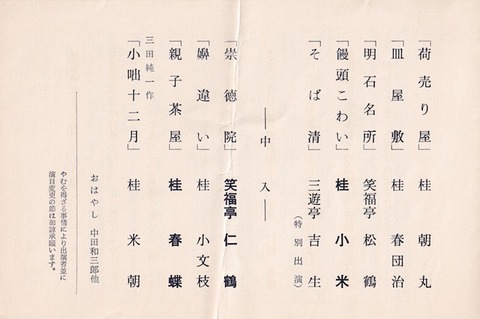 「荷売り屋」桂朝丸
「皿屋敷」桂春団治
「明石名所」笑福亭松鶴
「饅頭こわい」桂小米
「そば清」三遊亭吉生
(特別出演)
―中入―
「崇徳院」笑福亭仁鶴
「嬶違い」桂小文枝
「親子茶屋」桂春蝶
三田純一作
「小咄十二月」桂米朝
おはやし 中田和三郎他
やむを得ざる事情により出演者並に
演目変更の節は御諒承願います。